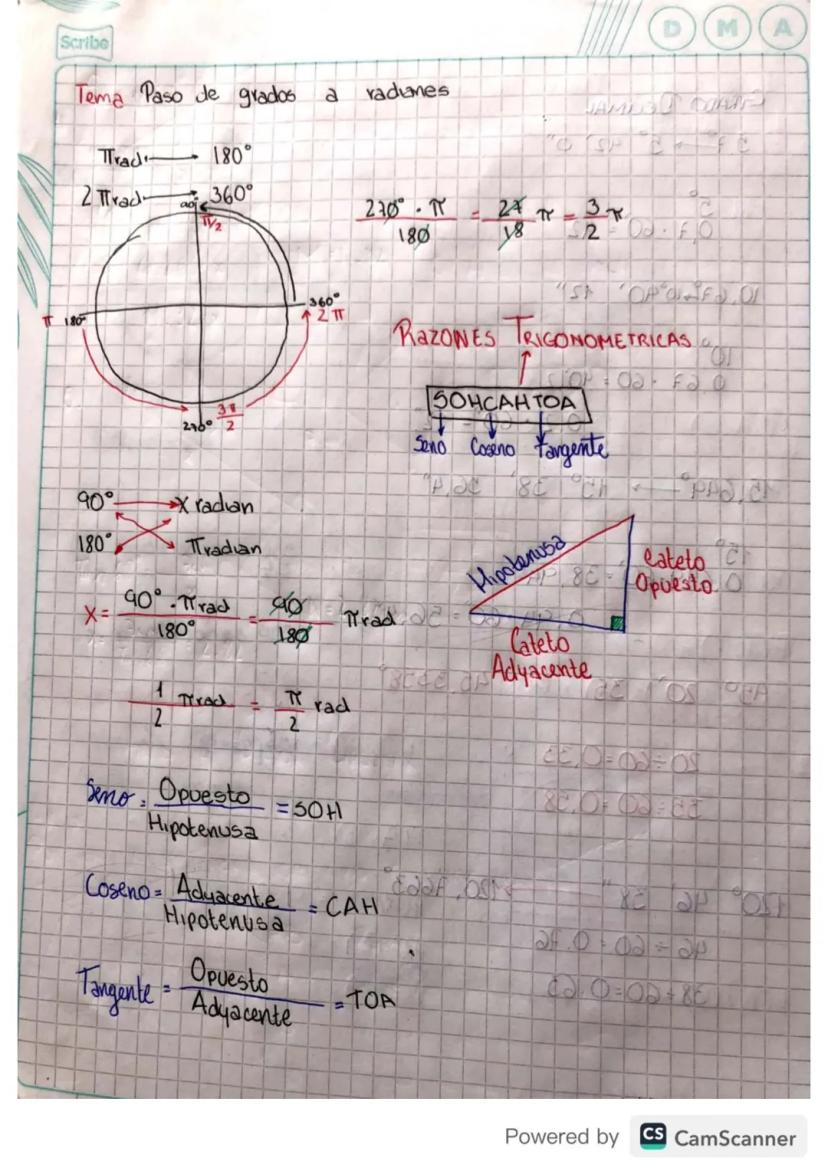 Scribe
D M A
Tema Paso de grados a radianes
πrad → 180°
2πrad → 360°
90°
π/2
360°
2π
π 180°
270° 3π/2
270° · π / 180 = 27/18 π = 3/2 π
RAZONES TRIGONOMETRICAS
SOHCAHTOA
Seno Coseno Tangente
90° → X radian
180° πradian
X = 90° · πrad / 180° = 90/180 πrad
1/2 πrad = π/2 rad
Hipotenusa
Cateto
Opuesto
Cateto
Adyacente
Seno = Opuesto / Hipotenusa = SOH
Coseno = Adyacente / Hipotenusa = CAH
Tangente = Opuesto / Adyacente = TOA
Powered by CS CamScanner